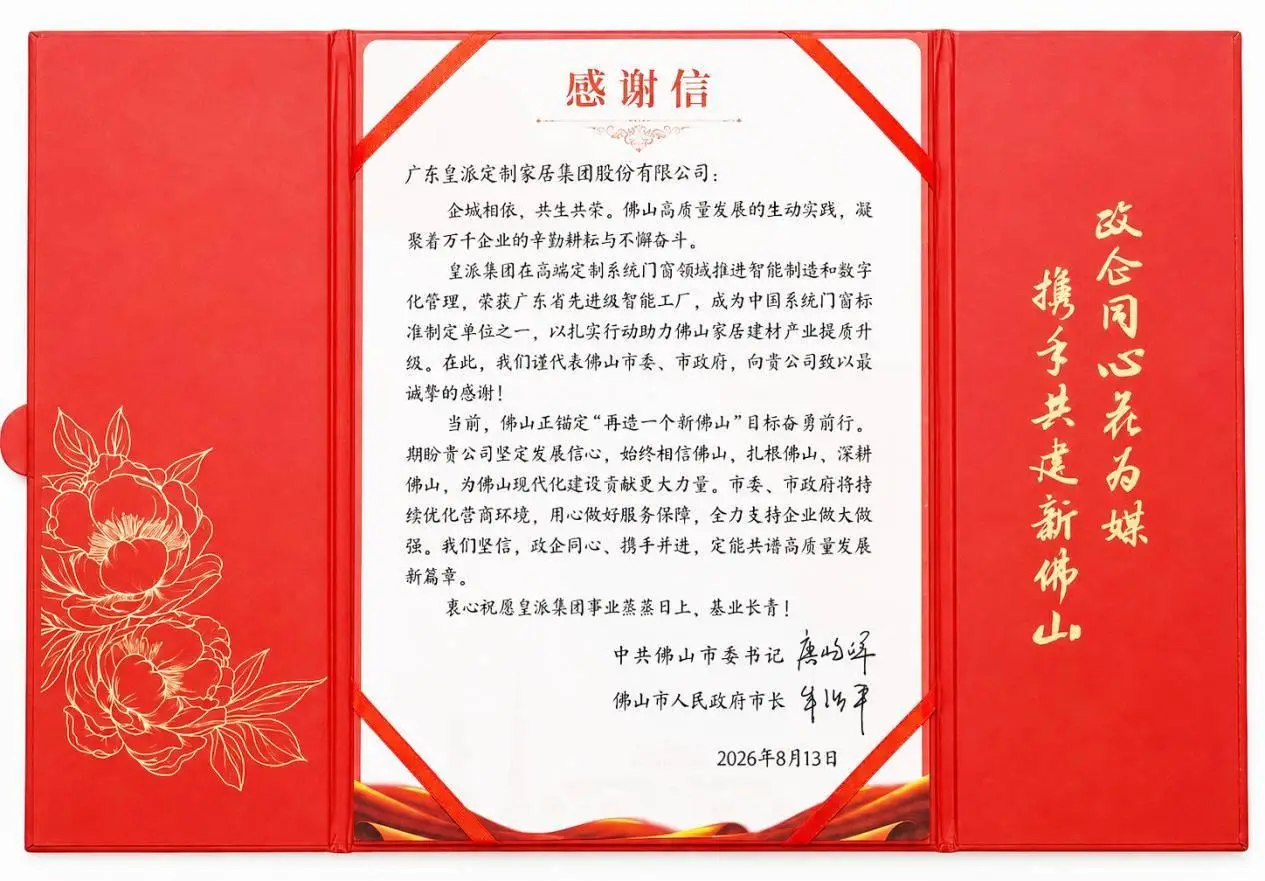 感谢信
广东皇派定制家居集团股份有限公司：
企城相依，共生共荣。佛山高质量发展的生动实践，凝
聚着万千企业的辛勤耕耘与不懈奋斗。
皇派集团在高端定制系统门窗领域推进智能制造和数字
化管理，荣获广东省先进级智能工厂，成为中国系统门窗标
准制定单位之一，以扎实行动助力佛山家居建材产业提质升
级。在此，我们谨代表佛山市委、市政府，向贵公司致以最
诚挚的感谢！
当前，佛山正锚定“再造一个新佛山”目标奋勇前行。
期盼贵公司坚定发展信心，始终相信佛山，扎根佛山、深耕
佛山，为佛山现代化建设贡献更大力量。市委、市政府将持
续优化营商环境，用心做好服务保障，全力支持企业做大做
强。我们坚信，政企同心、携手并进，定能共谱高质量发展
新篇章。
衷心祝愿皇派集团事业蒸蒸日上、基业长青！
中共佛山市委书记
佛山市人民政府市长
2026年8月13日
政企同心花为媒
携手共建新佛山